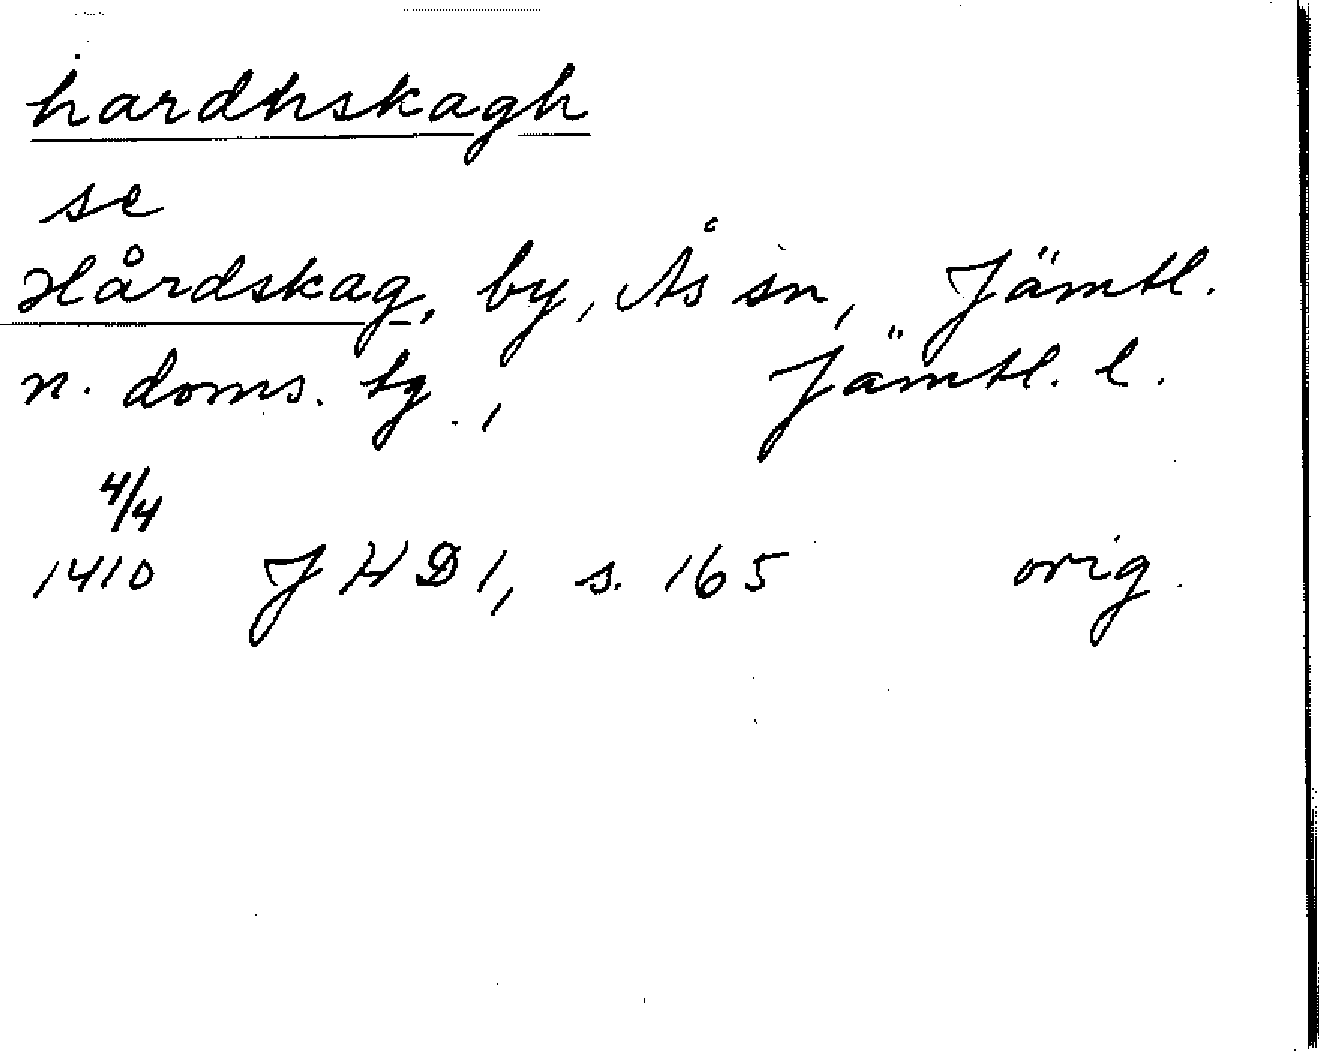 hardhskagh
se
Hårdskag, by, Ås sn, Jämtl.
n. doms. tg., Jämtl. l.
4/4
1410 JHD 1, s. 165 orig.